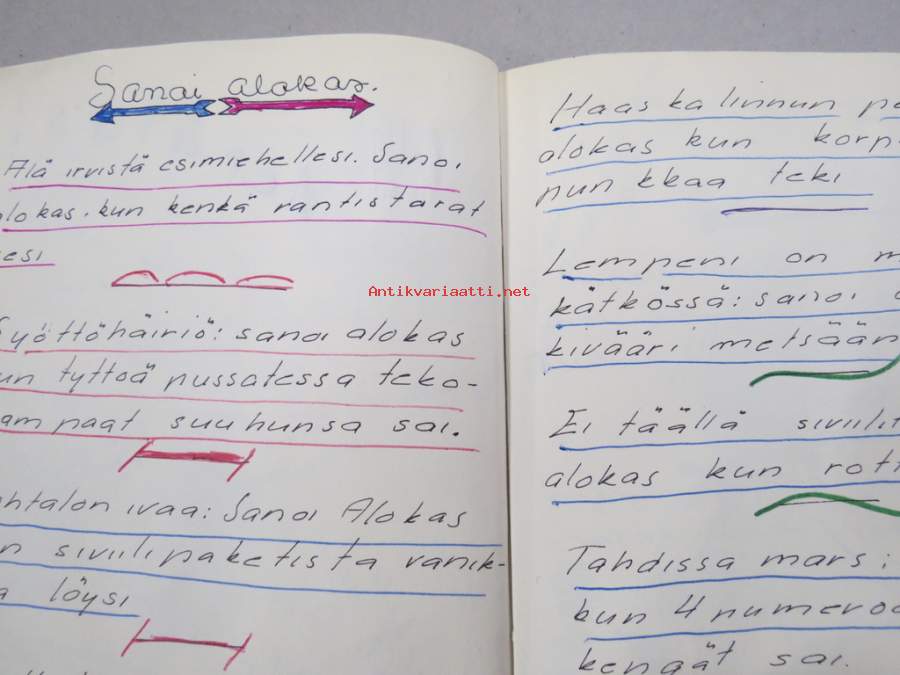 Sanoi alokas.
Älä irvistä esimiehellesi. Sanoi
alokas. kun kenkä
esi
Syöttöhäiriö: sanoi alokas
un tyttöä pussatessa teko-
ampaat suuhunsa sai.
ohtalon ivaa: Sanoi Alokas
n siviilipaketista vanik-
a löysi
Haaskalinnun pe
alokas kun korp
punkkaa teki
Lempeni on m
kätkössä: sanoi a
kivääri metsään
Ei täällä siviilit
alokas kun rott
Tahdissa mars:
kun 4 numeroa
kengät sai.
Antikvariaatti.net